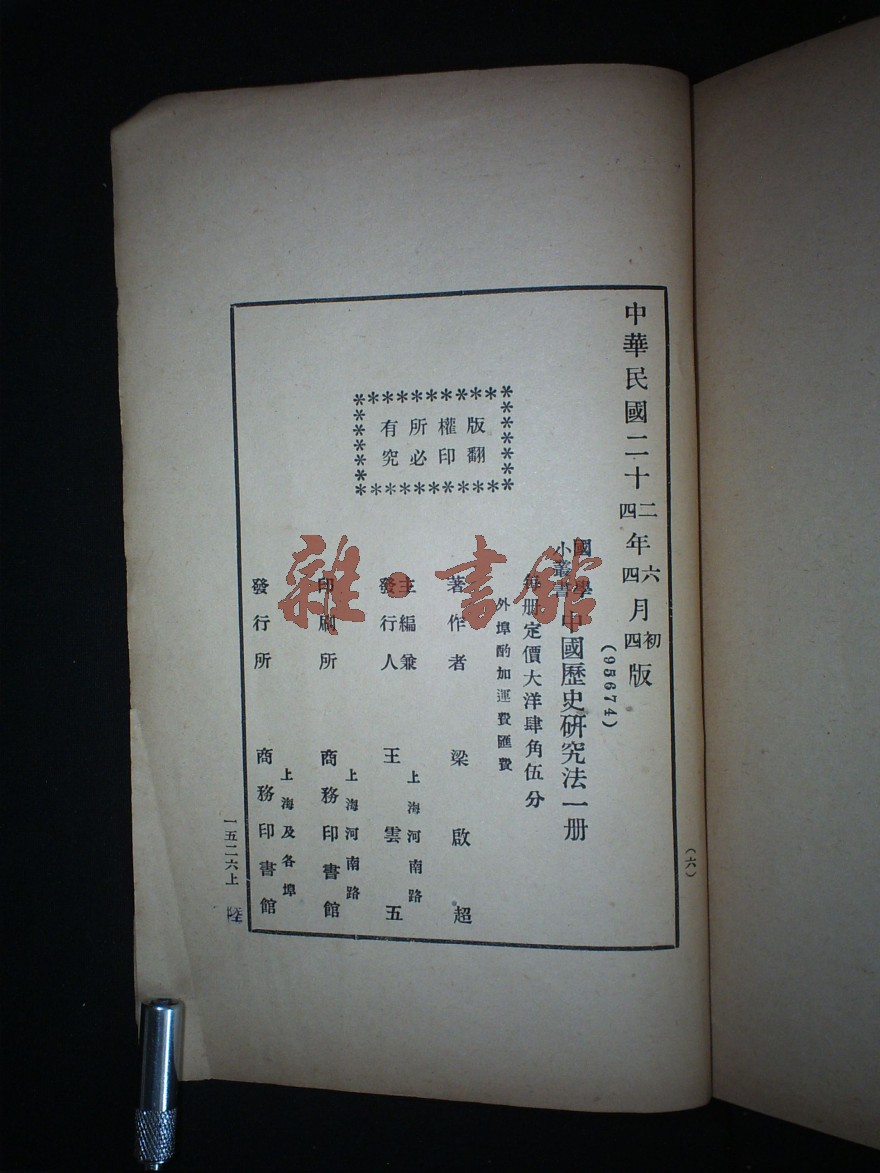 (六)
中華民國二十二四年六四月初四版
(95674)
國學
小叢書
中國歷史研究法一册
每册定價大洋肆角伍分
外埠酌加運費匯費
版權所有
翻印必究
著作者 梁啟超
主編兼
發行人
上海河南路
王雲五
印刷所
上海河南路
商務印書館
發行所
上海及各埠
商務印書館
一五二六上
陸
雜·書館